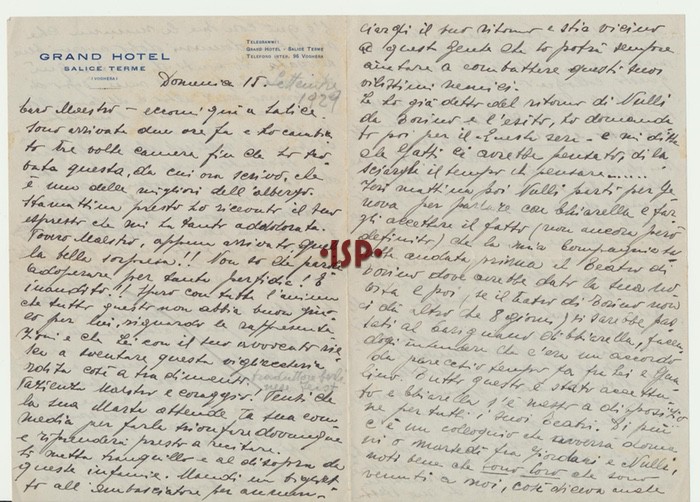 GRAND HOTEL
SALICE-TERME
(VOGHERA)
TELEGRAMMI:
GRAND HOTEL - SALICE TERME
TELEFONO INTER. 56 VOGHERA
Domenica 15. Settembre
1929
Caro Maestro - eccomi qui a Salice
sono arrivata due ore fa e ho cambia
to tre volte camera fin che ho tro
vata questa, da cui ora scrivo, che
è una delle migliori dell'albergo.
Stamattina presto ho ricevuto il suo
espresso che mi ha tanto addolorata.
Povero Maestro, appena arrivato quel
la bella sorpresa!! Non so che parole
adoperare per tanta perfidia! È
inaudito!! Spero con tutta l'anima
che tutto questo non abbia buon gio
co per lei, riguardo le rappresenta
zioni e che Lei con il suo avvocato rie
sca a sventare questa vigliaccheria
ordita così a tradimento.
Pazienza Maestro e coraggio! Pensi che
la sua Marta attende la sua com
media per farla trionfare dovunque
e riprenderà presto a recitare.
Si metta tranquillo e al disopra di
queste infamie. Mandi un biglietto
to all'ambasciatore per annun-
ISP
ciargli il suo ritorno e stia vicino
a questa gente che lo potrà sempre
aiutare a combattere questi suoi
vilissimi nemici.
Le ho già detto del ritorno di Nulli
da Torino e l'esito, ho domanda
to poi per il Questa sera - e mi disse
che Gatti ci avrebbe pensato, di la
sciargli il tempo di pensare.......
Ieri mattina poi Nulli partì per Ge
nova per parlare con Chiarella e far
gli accettare il fatto (non ancora però
definito) che la mia Compagnia sa
rebbe andata prima al Teatro di
Torino dove avrebbe dato la sua no
vità e poi, se il teatro di Torino non
ci dà altro che 8 giorni, si sarebbe pas
sati al Carignano di Chiarella, facen
dogli intendere che c'era un accordo
da parecchio tempo fra lei e Gua
lino. Tutto questo è stato accetta
to e Chiarella s'è messo a disposizio
ne per tutti i suoi teatri. Di più
c'è un colloquio che avverrà doma
ni o martedì fra Giordani e Nulli,
noti bene che sono loro che sono
venuti a noi, così diceva